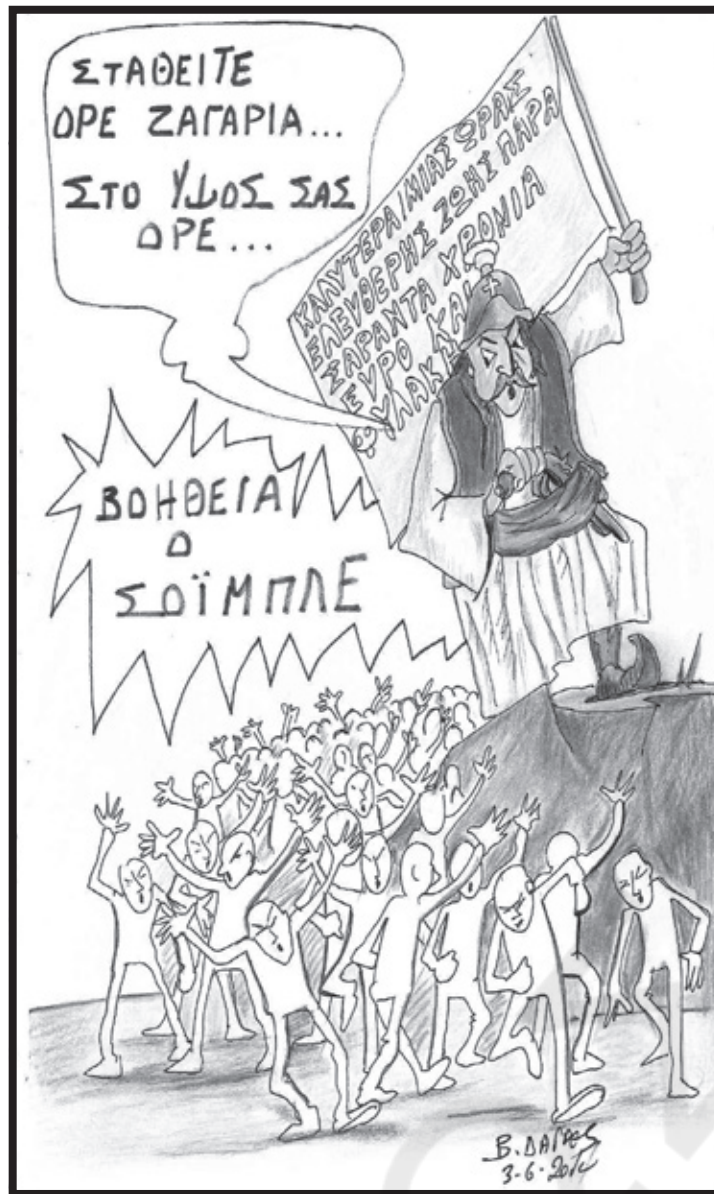 ΣΤΑΘΕΙΤΕ
ΟΡΕ ΖΑΓΑΡΙΑ...
ΣΤΟ ΥΨΟΣ ΣΑΣ
ΟΡΕ...
ΚΑΛΥΤΕΡΑ ΜΙΑΣ ΩΡΑΣ
ΕΛΕΥΘΕΡΗΣ ΖΩΗΣ ΠΑΡΑ
ΣΑΡΑΝΤΑ ΧΡΟΝΙΑ
ΕΥΡΟ ΚΑΙ
ΒΟΗΘΕΙΑ
Ο
ΣΟΪΜΠΛΕ
3-6-2012